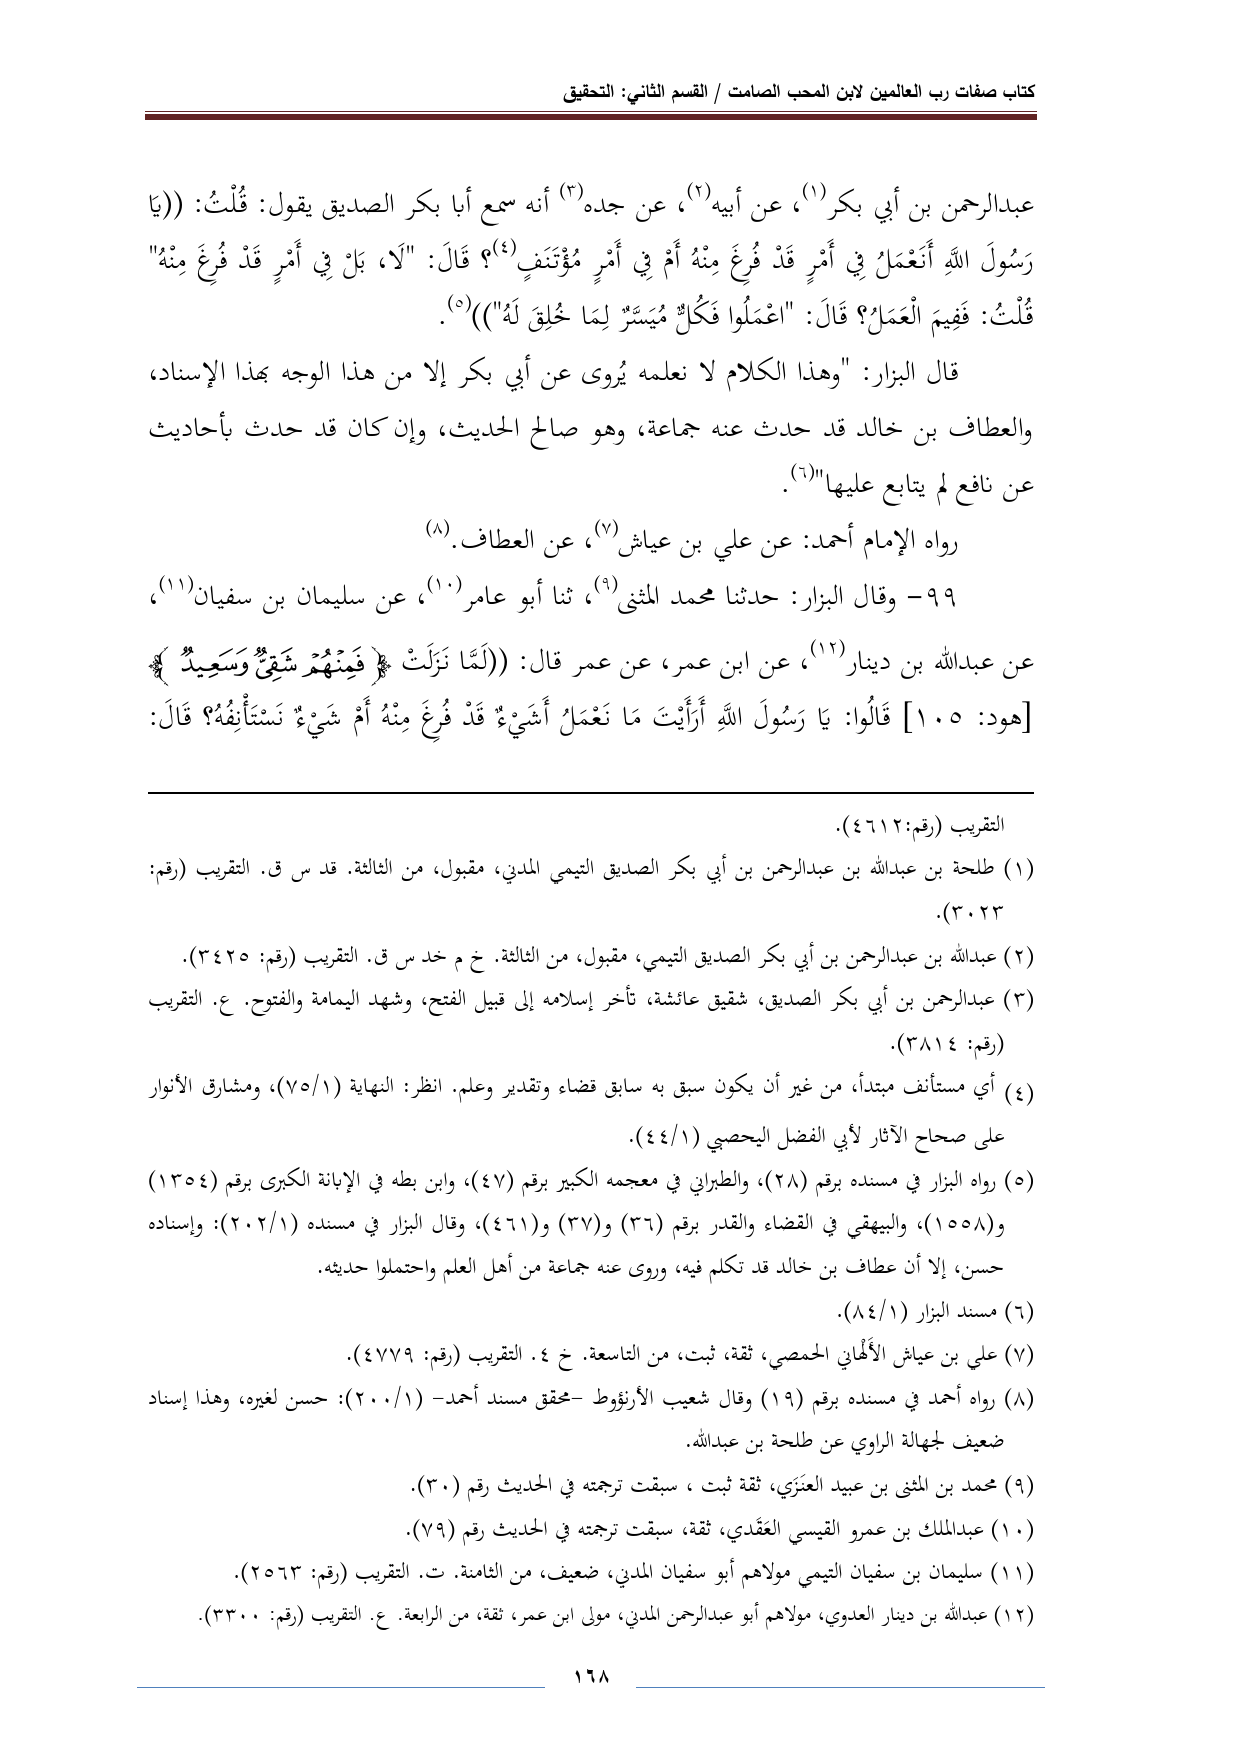 كتاب صفات رب العالمين لابن المحب الصامت / القسم الثاني: التحقيق
عبدالرحمن بن أبي بكر(١)، عن أبيه(٢)، عن جده(٣) أنه سمع أبا بكر الصديق يقول: قُلْتُ: ((يَا
رَسُولَ اللَّهِ أَنَعْمَلُ فِي أَمْرٍ قَدْ فُرِغَ مِنْهُ أَمْ فِي أَمْرٍ مُؤْتَنَفٍ(٤)؟ قَالَ: "لَا، بَلْ فِي أَمْرٍ قَدْ فُرِغَ مِنْهُ"
قُلْتُ: فَفِيمَ الْعَمَلُ؟ قَالَ: "اعْمَلُوا فَكُلٌّ مُيَسَّرٌ لِمَا خُلِقَ لَهُ"))(٥).
قال البزار: "وهذا الكلام لا نعلمه يُروى عن أبي بكر إلا من هذا الوجه بهذا الإسناد،
والعطاف بن خالد قد حدث عنه جماعة، وهو صالح الحديث، وإن كان قد حدث بأحاديث
عن نافع لم يتابع عليها"(٦).
رواه الإمام أحمد: عن علي بن عياش(٧)، عن العطاف.(٨)
٩٩- وقال البزار: حدثنا محمد المثنى(٩)، ثنا أبو عامر(١٠)، عن سليمان بن سفيان(١١)،
عن عبدالله بن دينار(١٢)، عن ابن عمر، عن عمر قال: ((لَمَّا نَزَلَتْ ﴿ فَمِنْهُمْ شَقِيٌّ وَسَعِيدٌ ﴾
[هود: ١٠٥] قَالُوا: يَا رَسُولَ اللَّهِ أَرَأَيْتَ مَا نَعْمَلُ أَشَيْءٌ قَدْ فُرِغَ مِنْهُ أَمْ شَيْءٌ نَسْتَأْنِفُهُ؟ قَالَ:
التقريب (رقم:٤٦١٢).
(١) طلحة بن عبدالله بن عبدالرحمن بن أبي بكر الصديق التيمي المدني، مقبول، من الثالثة. قد س ق. التقريب (رقم:
٣٠٢٣).
(٢) عبدالله بن عبدالرحمن بن أبي بكر الصديق التيمي، مقبول، من الثالثة. خ م خد س ق. التقريب (رقم: ٣٤٢٥).
(٣) عبدالرحمن بن أبي بكر الصديق، شقيق عائشة، تأخر إسلامه إلى قبيل الفتح، وشهد اليمامة والفتوح. ع. التقريب
(رقم: ٣٨١٤).
(٤) أي مستأنف مبتدأ، من غير أن يكون سبق به سابق قضاء وتقدير وعلم. انظر: النهاية (٧٥/١)، ومشارق الأنوار
على صحاح الآثار لأبي الفضل اليحصبي (٤٤/١).
(٥) رواه البزار في مسنده برقم (٢٨)، والطبراني في معجمه الكبير برقم (٤٧)، وابن بطه في الإبانة الكبرى برقم (١٣٥٤)
و(١٥٥٨)، والبيهقي في القضاء والقدر برقم (٣٦) و(٣٧) و(٤٦١)، وقال البزار في مسنده (٢٠٢/١): وإسناده
حسن، إلا أن عطاف بن خالد قد تكلم فيه، وروى عنه جماعة من أهل العلم واحتملوا حديثه.
(٦) مسند البزار (٨٤/١).
(٧) علي بن عياش الأَلْهاني الحمصي، ثقة، ثبت، من التاسعة. خ ٤. التقريب (رقم: ٤٧٧٩).
(٨) رواه أحمد في مسنده برقم (١٩) وقال شعيب الأرنؤوط -محقق مسند أحمد- (٢٠٠/١): حسن لغيره، وهذا إسناد
ضعيف لجهالة الراوي عن طلحة بن عبدالله.
(٩) محمد بن المثنى بن عبيد العنَزَي، ثقة ثبت ، سبقت ترجمته في الحديث رقم (٣٠).
(١٠) عبدالملك بن عمرو القيسي العَقَدي، ثقة، سبقت ترجمته في الحديث رقم (٧٩).
(١١) سليمان بن سفيان التيمي مولاهم أبو سفيان المدني، ضعيف، من الثامنة. ت. التقريب (رقم: ٢٥٦٣).
(١٢) عبدالله بن دينار العدوي، مولاهم أبو عبدالرحمن المدني، مولى ابن عمر، ثقة، من الرابعة. ع. التقريب (رقم: ٣٣٠٠).
١٦٨